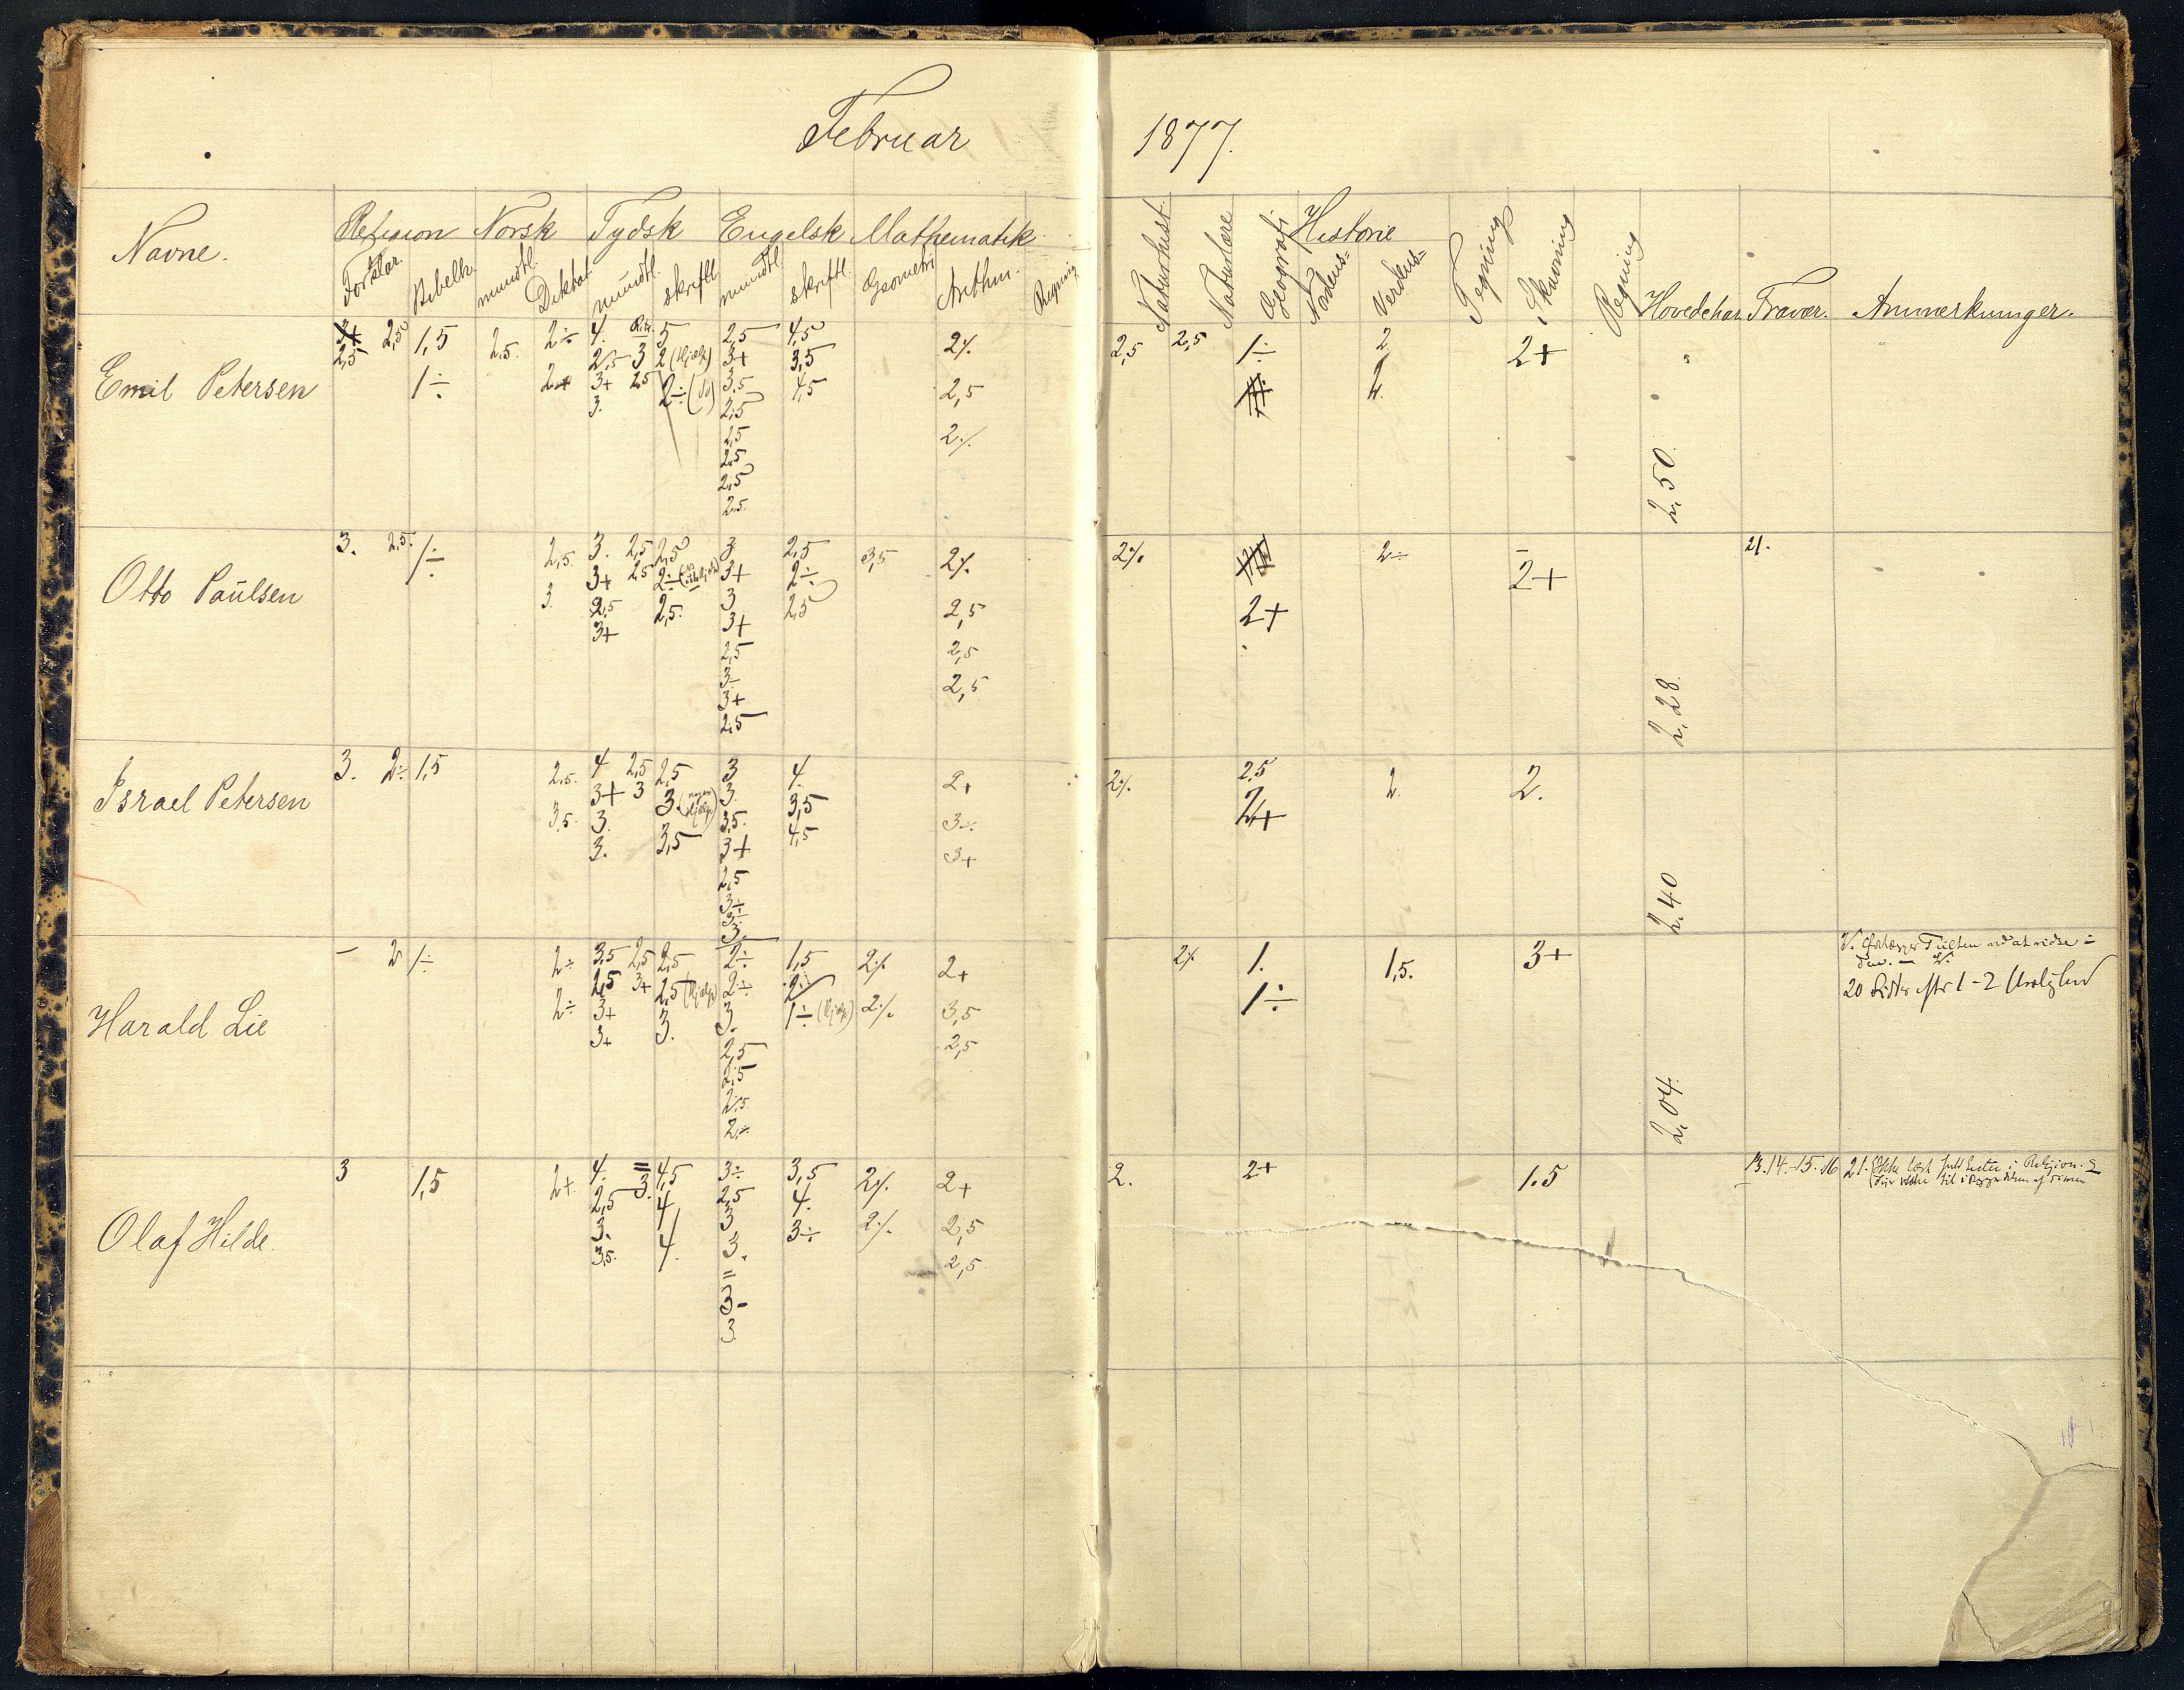 Februar 1877.
Navne. Religion Norsk Tydsk Engelsk Mathematik
Forklar. Bibelh. mundtl. Diktat mundtl. skriftl. mundtl. skriftl. Geometri Arithm. Regning
Naturhist. Naturlære Geografi Historie Nordens= Verdens= Tegning Skrivning Regning Hovedchar. Fravær. Anmerkninger.
Emil Petersen
2,5 2,5 1,5 2,5. 2÷ 4. 5 2,5 4,5 2% 2,5 2,5 1÷ 2 2+
1÷ 2+ 2,5 3 2 (Hjælp) 3+ 3,5 2,5 2.
3+ 2,5 2÷ (do) 3,5 4,5 2%
3. 2,5
2,5
2,5
2,5
2,5
2,50
Otto Paulsen
3. 2,5. 1÷ 2,5. 3. 2,5 2,5 3 2,5 3,5 2% 2% 2÷ 2+ 21.
3. 3+ 2,5 2÷ 3+ 2÷ 2,5 2+
2,5 2,5. 3 2,5 2,5
3+ 3+ 2,5
2,5
3÷
3+
2,5
2,28
Israel Petersen
3. 2÷ 1,5 2,5. 4 2,5 2,5 3 4. 2+ 2% 2,5 2. 2.
3,5. 3+ 3 3. (nogen Hjælp) 3. 3,5 3÷ 2+
3. 3,5 3,5. 4,5 3+
3. 3+
2,5
3+
3÷
3.
2,40
Harald Lie
– 2 1÷ 2÷ 3,5 2,5 2,5 2÷ 1,5 2% 2+ 2% 1. 1,5. 3+
2÷ 2,5 3+ 2,5+ (Hjælp) 2÷ 2÷ 2% 3,5 1÷
3+ 3. 3. 1÷ (Hjælp) 2,5
3+ 2,5
2,5
2,5.
2÷
2,04.
20
Olaf Hilde.
3 1,5 2+ 4. 3. 4,5 3÷ 3,5 2% 2+ 2. 2+ 1.5 13.14.-15.16 21. i Religion.
2,5 4 2,5 4. 2% 2,5
3. 4. 3 3÷ 2,5
3,5. 3.
3-
3